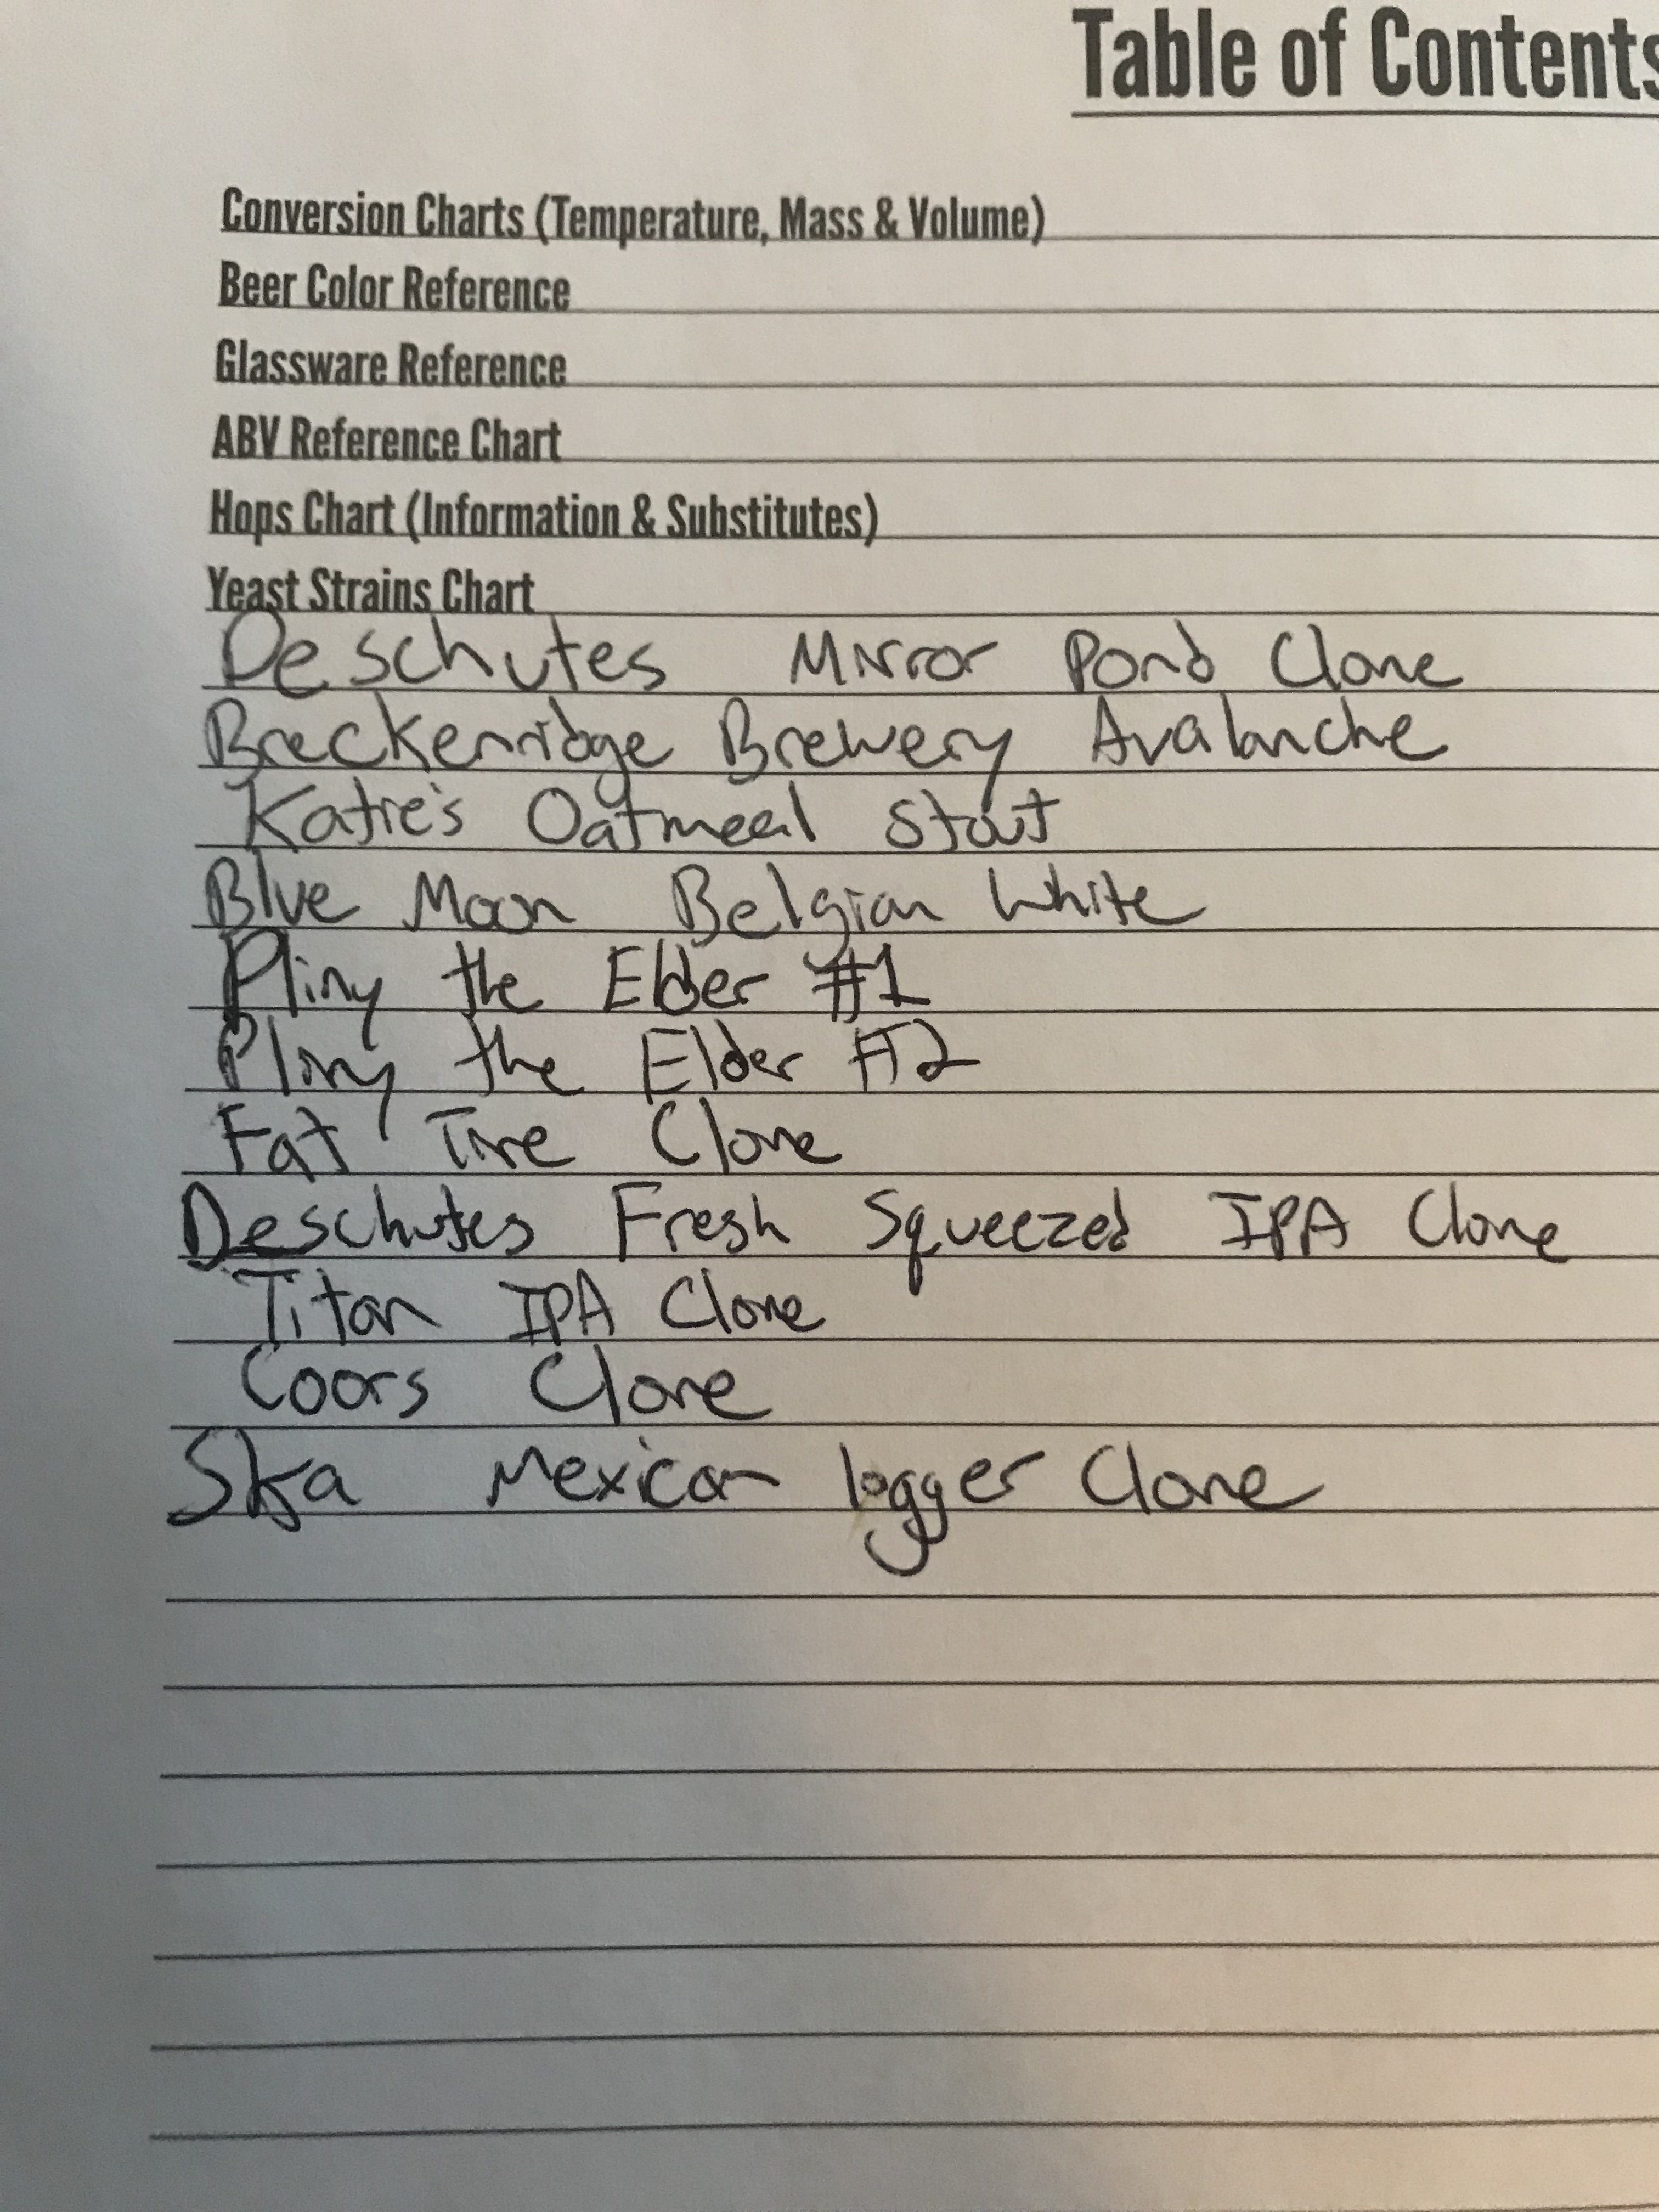 Table of Contents
Conversion Charts (Temperature, Mass & Volume)
Beer Color Reference
Glassware Reference
ABV Reference Chart
Hops Chart (Information & Substitutes)
Yeast Strains Chart
Deschutes Mirror Pond Clone
Breckenridge Brewery Avalanche
Katie's Oatmeal Stout
Blue Moon Belgian White
Pliny the Elder #1
Pliny the Elder #2
Fat Tire Clone
Deschutes Fresh Squeezed IPA Clone
Titan IPA Clone
Coors Clone
Ska Mexican logger Clone